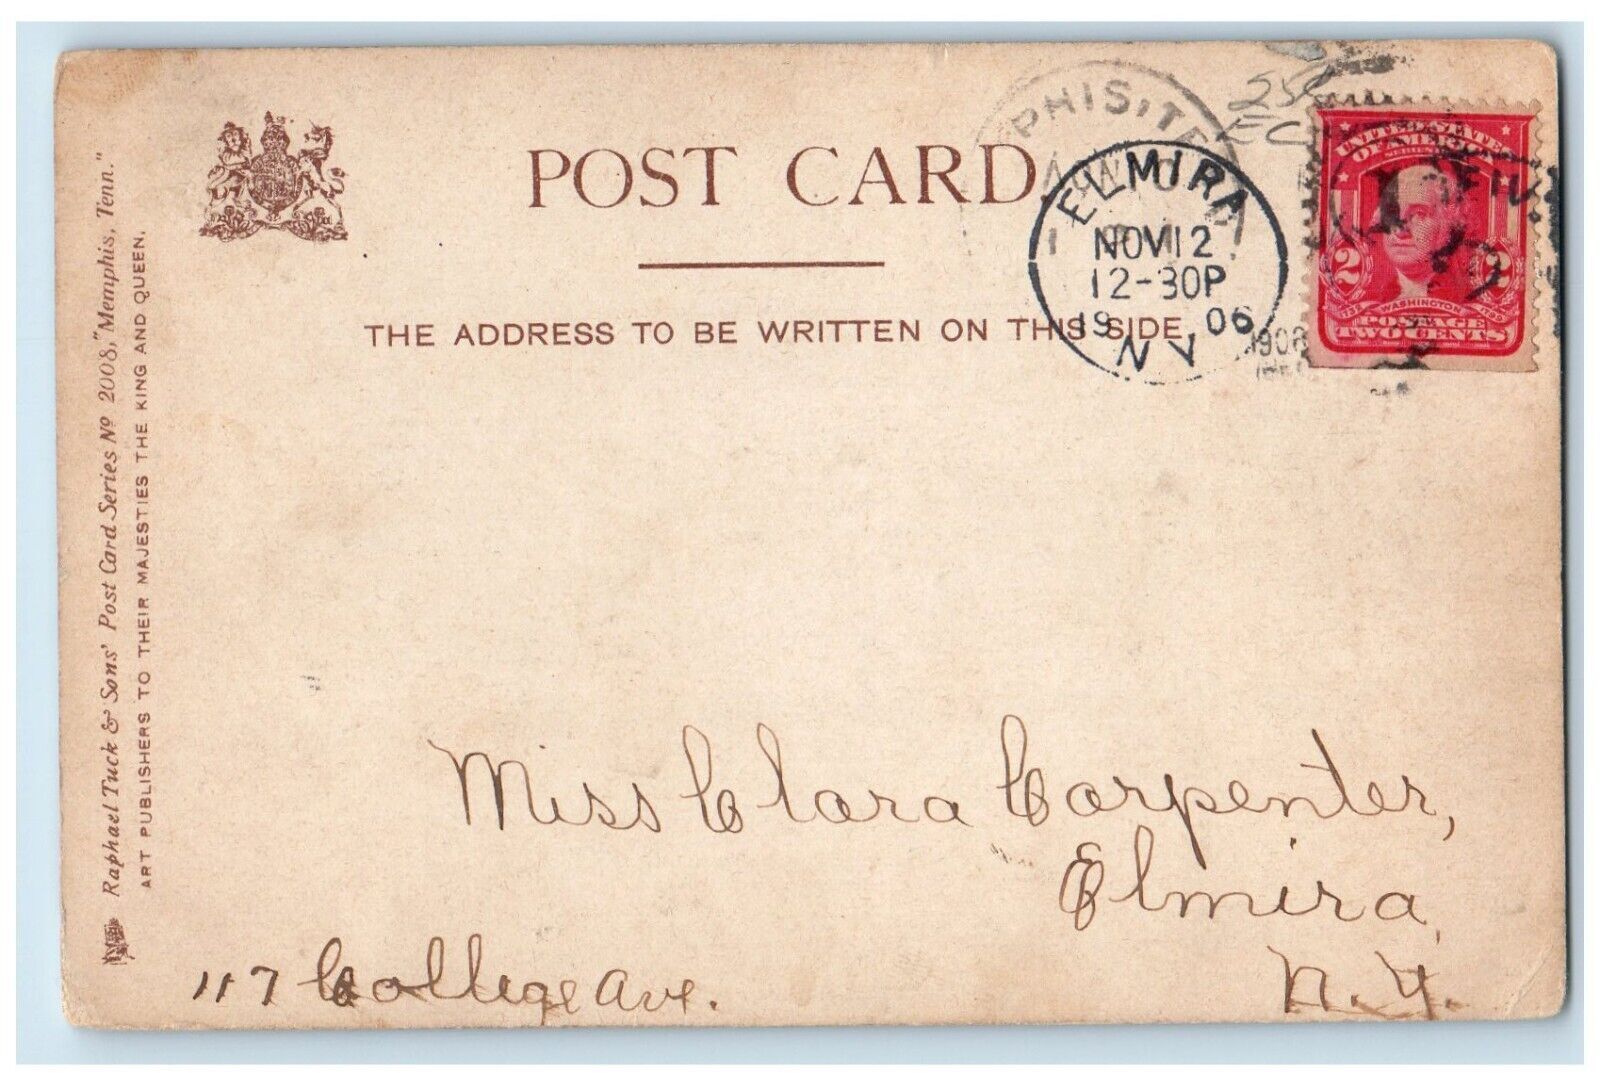 POST CARD.
THE ADDRESS TO BE WRITTEN ON THIS SIDE.
Raphael Tuck & Sons' Post Card Series No 2008, "Memphis, Tenn."
ART PUBLISHERS TO THEIR MAJESTIES THE KING AND QUEEN.
PHIS, TE
ELMIRA
NOV 12
12-30P
19 06
N Y
1906
UNITED STATES
OF AMERICA
2 2
WASHINGTON
POSTAGE
TWO CENTS
Miss Clara Carpenter,
Elmira,
117 College Ave. N. Y.